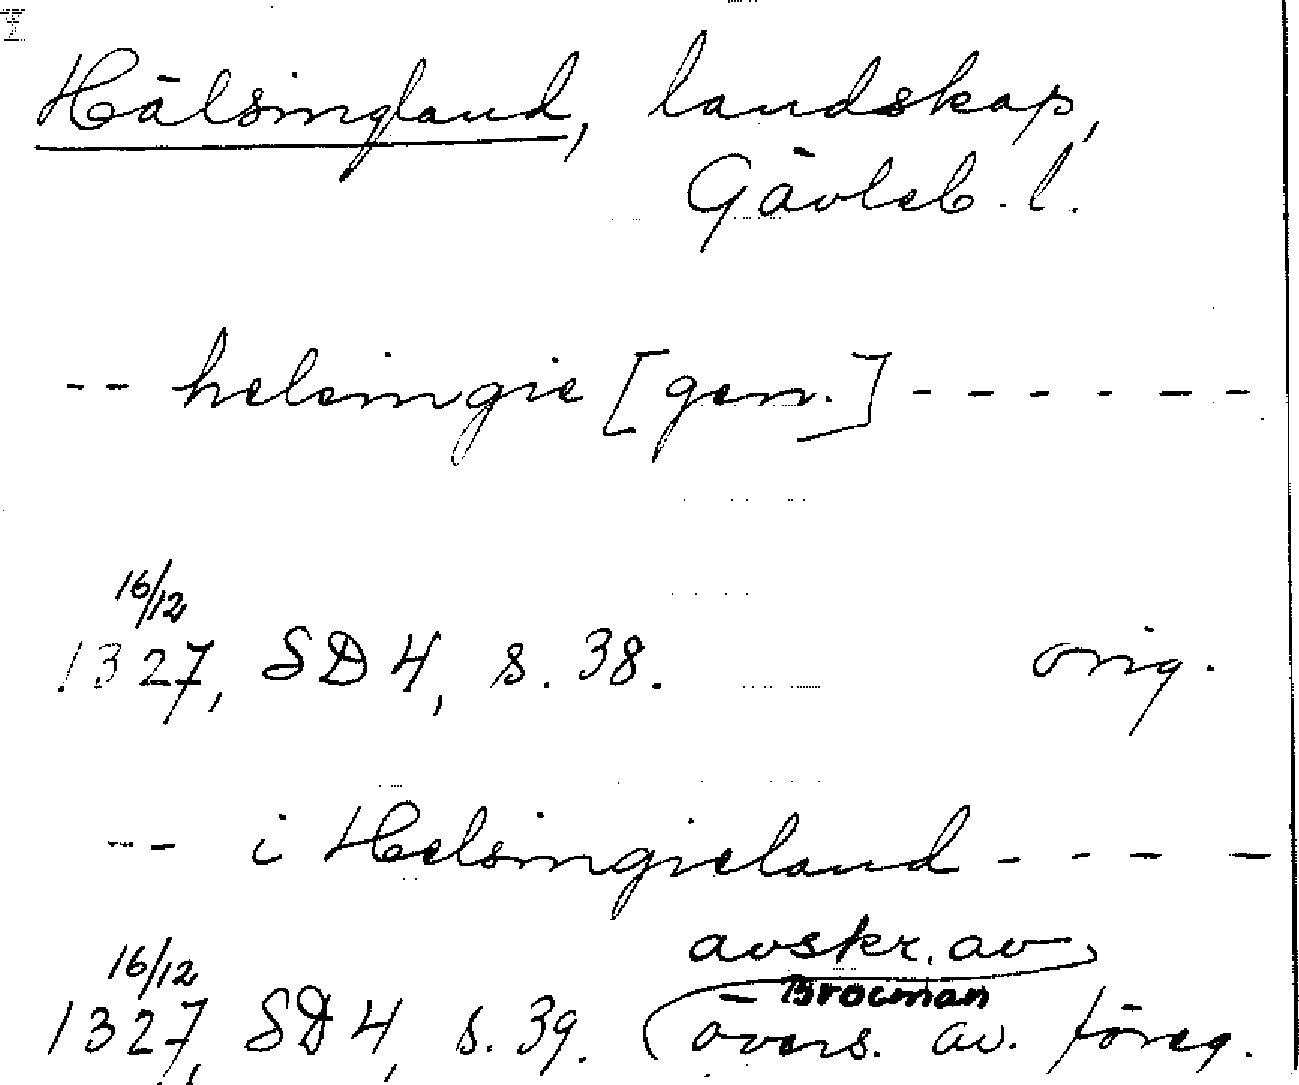 Hälsingland, landskap,
Gävleb. l.
-- helsingie [gen.] ------
16/12
1327, SD 4, s. 38. orig.
-- i Helsingieland ----
avskr. av
Brocman
16/12
1327, SD 4, s. 39. (övers. av föreg.